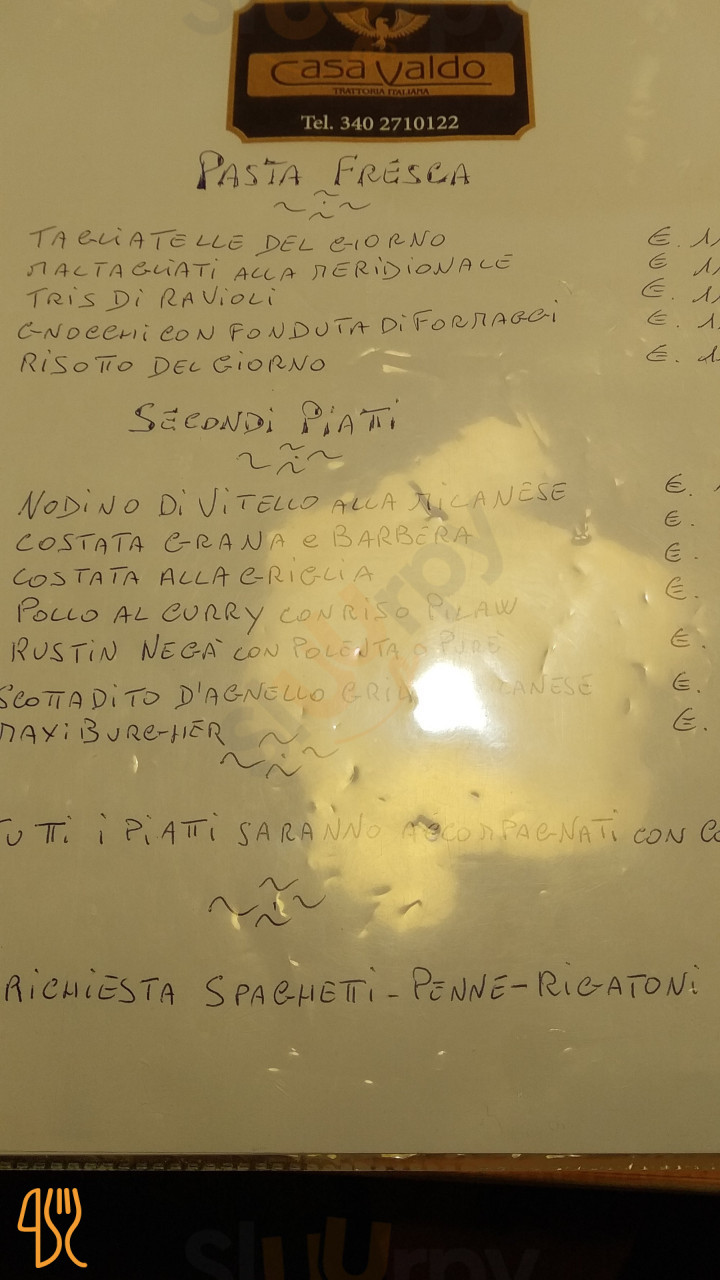 Casa Valdo
TRATTORIA ITALIANA
Tel. 340 2710122
PASTA FRESCA
TAGLIATELLE DEL GIORNO €. 1
MALTAGLIATI ALLA MERIDIONALE € 1
TRIS DI RAVIOLI €. 1
GNOCCHI CON FONDUTA DI FORMAGGI €. 1
RISOTTO DEL GIORNO €. 1
SECONDI PIATTI
NODINO DI VITELLO ALLA MILANESE €. 1
COSTATA GRANA e BARBERA €.
COSTATA ALLA GRIGLIA €.
POLLO AL CURRY CON RISO PILAW €.
RUSTIN NEGÀ CON POLENTA O PURÈ €.
SCOTTADITO D'AGNELLO €.
MAXI BURGHER €.
TUTTI I PIATTI SARANNO ACCOMPAGNATI CON
RICHIESTA SPAGHETTI - PENNE - RIGATONI
Sluurpy